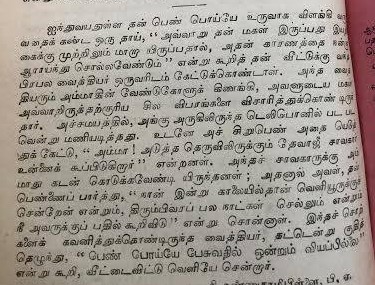 ஐந்துவயதுள்ள தன் பெண் பொய்யே உருவாக விளங்கி வரு
வதைக் கண்ட ஒரு தாய், “அவ்வாறு தன் மகள் இருப்பது இயற்
கைக்கு முற்றிலும் மாறா யிருப்பதால், அதன் காரணத்தை நன்கு
ஆராய்ந்து சொல்லவேண்டும்” என்று கூறித் தன் வீட்டுக்கு வந்த
பிரபல வைத்தியர் ஒருவரிடம் கேட்டுக்கொண்டாள். அந்த வைத்
தியரும் அம்மாதின் வேண்டுகோளுக் கிணங்கி, அவளுடைய மகள்
அவ்வாறிருத்தற்குரிய சில விபரங்களை விசாரித்துக்கொண் டிருந்
தார். அச்சமயத்தில், அங்கு அருகிலிருந்த டெலிபோனில் பட பட
வென்று மணியடித்தது. உடனே அச் சிறுபெண் அதை யெடுத்
துக் கேட்டு, “அம்மா! அடுத்த தெருவிலிருக்கும் தேவாஜி சாவகார்
உன்னைக் கூப்பிடுகிறார்” என்றனள். அந்தச் சாவகாருக்கு அம்
மாது கடன் கொடுக்கவேண்டி யிருந்தனள்; அதனால் அவள், தன்
பெண்ணைப் பார்த்து, “நான் இன்று காலையில்தான் வெளியூருக்குச்
சென்றேன் என்றும், திரும்பிவரப் பல நாட்கள் செல்லும் என்றும்
நீ அவருக்குப் பதில் கூறிவிடு” என்று சொன்னாள். இந்தச் சொற்
களைக் கவனித்துக்கொண்டிருந்த வைத்தியர், சட்டென்று குதித்
தெழுந்து, “பெண் பொய்யே பேசுவதில் ஒன்றும் வியப்பில்லை”
என்று கூறி, வீட்டைவிட்டு வெளியே சென்றார்.
பி. ஏ.